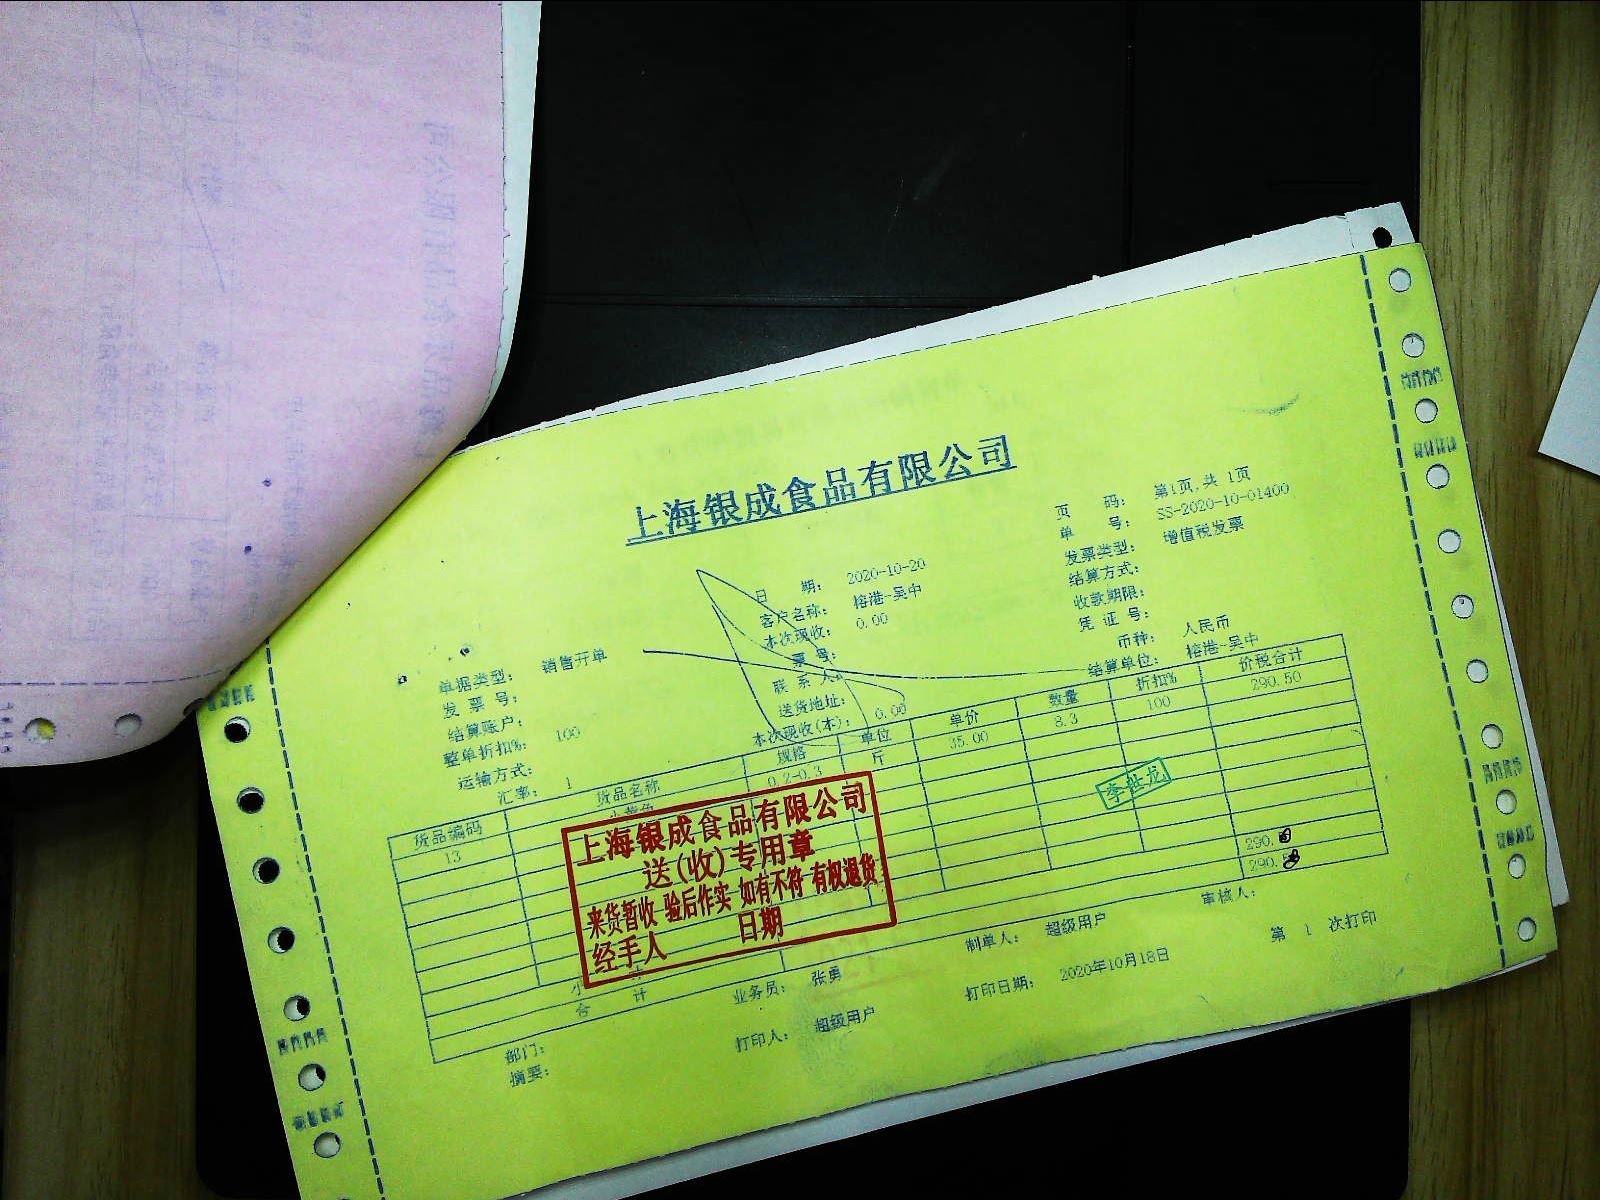 上海银成食品有限公司
页 码： 第1页,共 1页
单 号： SS-2020-10-01400
日 期： 2020-10-20
发票类型： 增值税发票
客户名称： 榕港-吴中
结算方式：
本次现收： 0.00
收款期限：
票 号：
凭 证 号：
单据类型： 销售开单
联 系 人：
币种： 人民币
发 票 号：
送货地址：
结算单位： 榕港-吴中
结算账户：
本次现收(本)： 0.00
整单折扣%： 100
运输方式：
汇率： 1
货品编码 货品名称 规格 单位 单价 数量 折扣% 价税合计
13 0.2-0.3 斤 35.00 8.3 100 290.50
李世龙
上海银成食品有限公司
送(收)专用章
来货暂收 验后作实 如有不符 有权退货
经手人 日期
小 290.
合 计 290.
部门： 业务员： 张勇 制单人： 超级用户 审核人：
摘要： 打印人： 超级用户 打印日期： 2020年10月18日 第 1 次打印